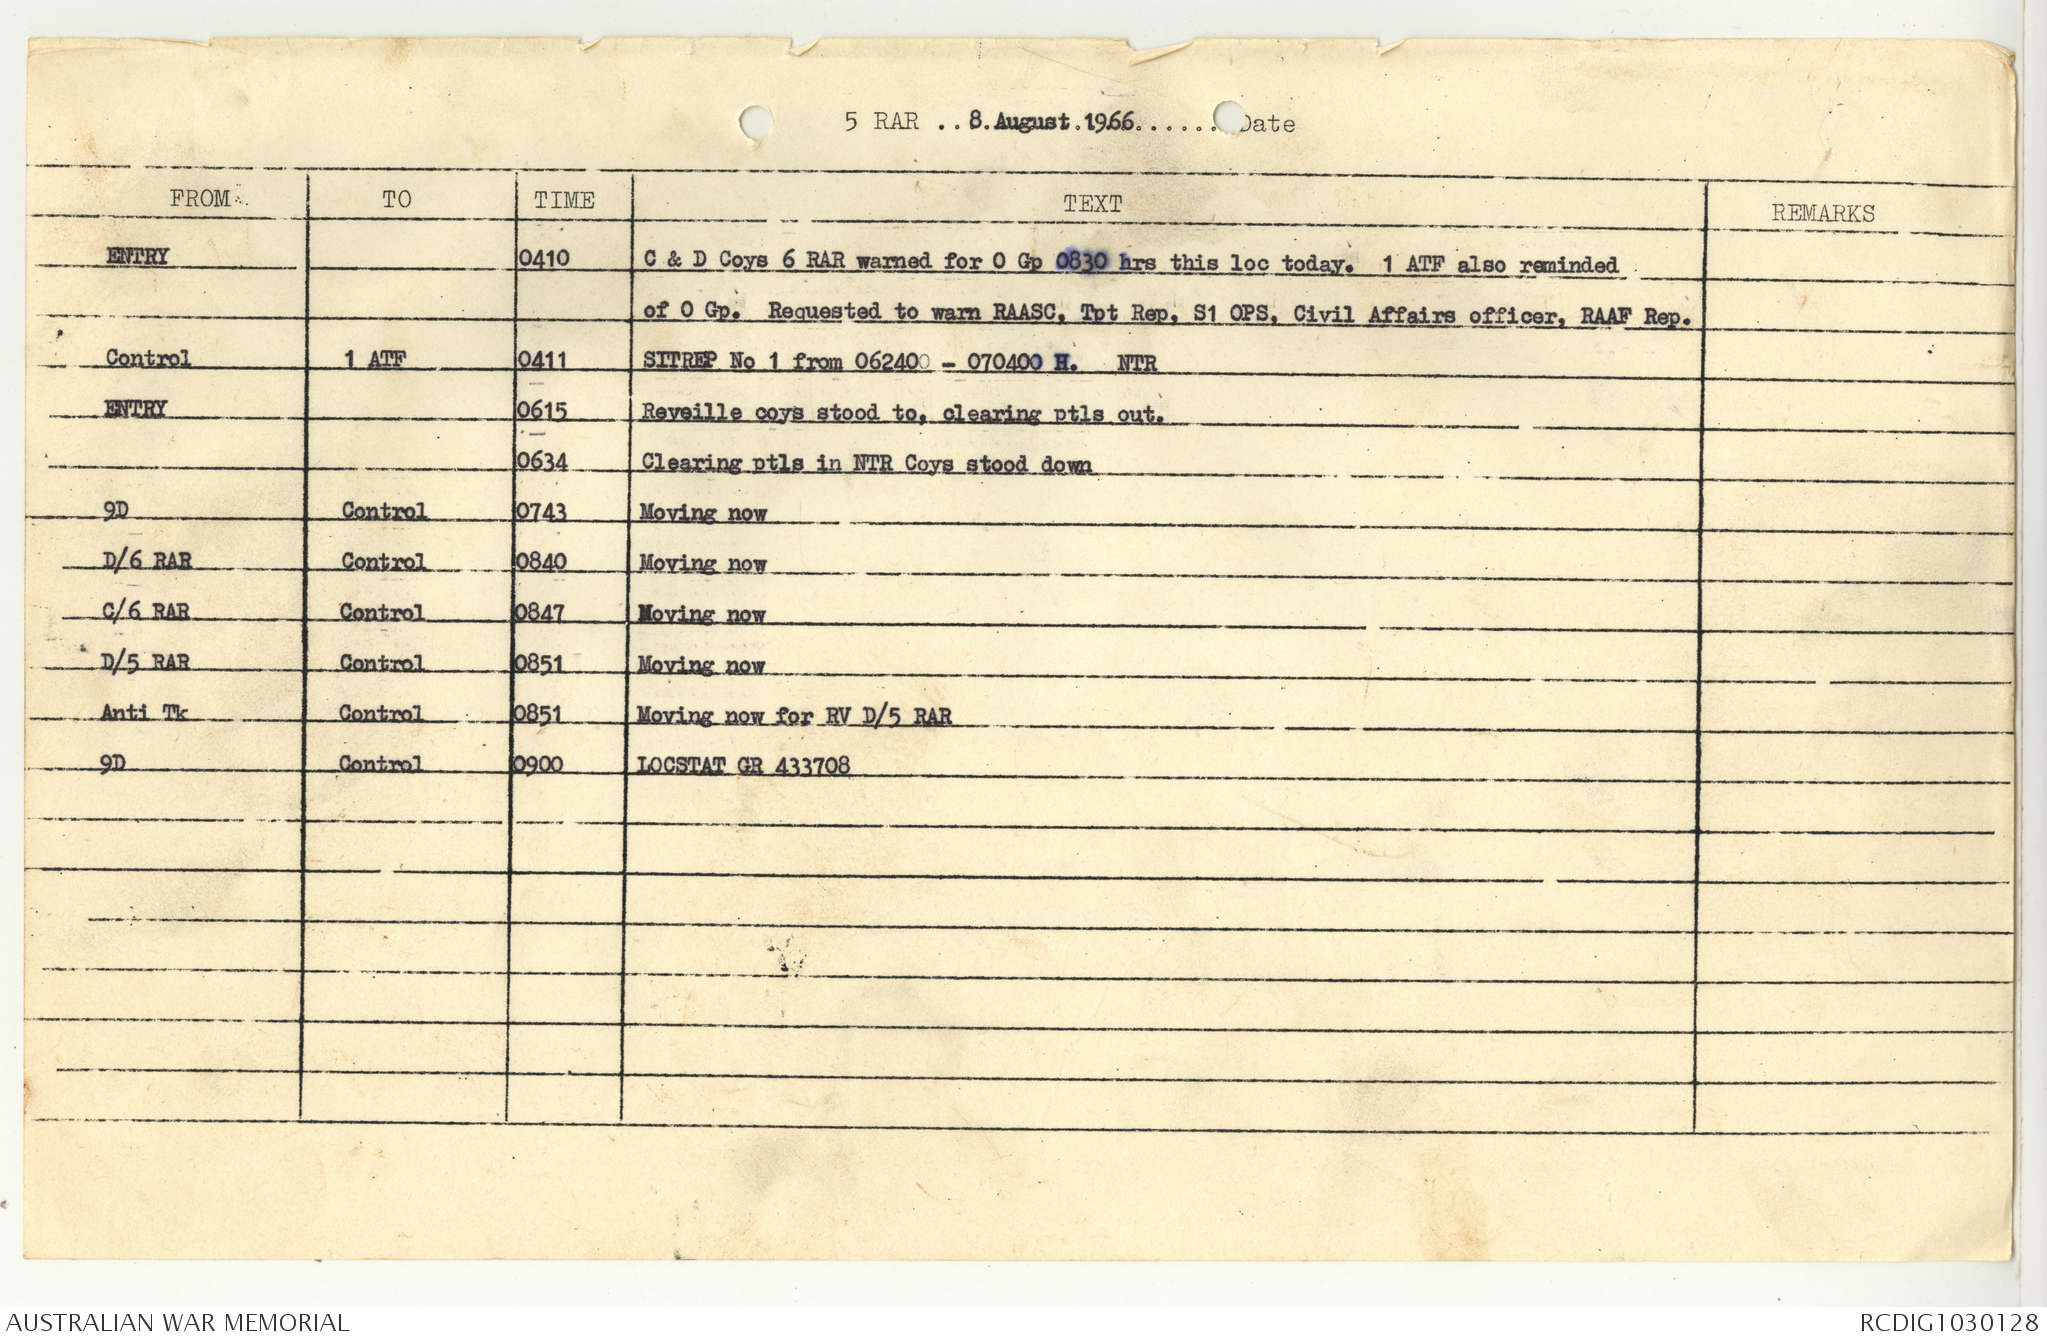 5 RAR .. 8.August.1966...... Date
FROM TO TIME TEXT REMARKS
ENTRY 0410 C & D Coys 6 RAR warned for O Gp 0830 hrs this loc today. 1 ATF also reminded
of O Gp. Requested to warn RAASC, Tpt Rep, S1 OPS, Civil Affairs officer, RAAF Rep.
Control 1 ATF 0411 SITREP No 1 from 062400 - 070400 H. NTR
ENTRY 0615 Reveille coys stood to, clearing ptls out.
0634 Clearing ptls in NTR Coys stood down
9D Control 0743 Moving now
D/6 RAR Control 0840 Moving now
C/6 RAR Control 0847 Moving now
D/5 RAR Control 0851 Moving now
Anti Tk Control 0851 Moving now for RV D/5 RAR
9D Control 0900 LOCSTAT GR 433708
AUSTRALIAN WAR MEMORIAL RCDIG1030128